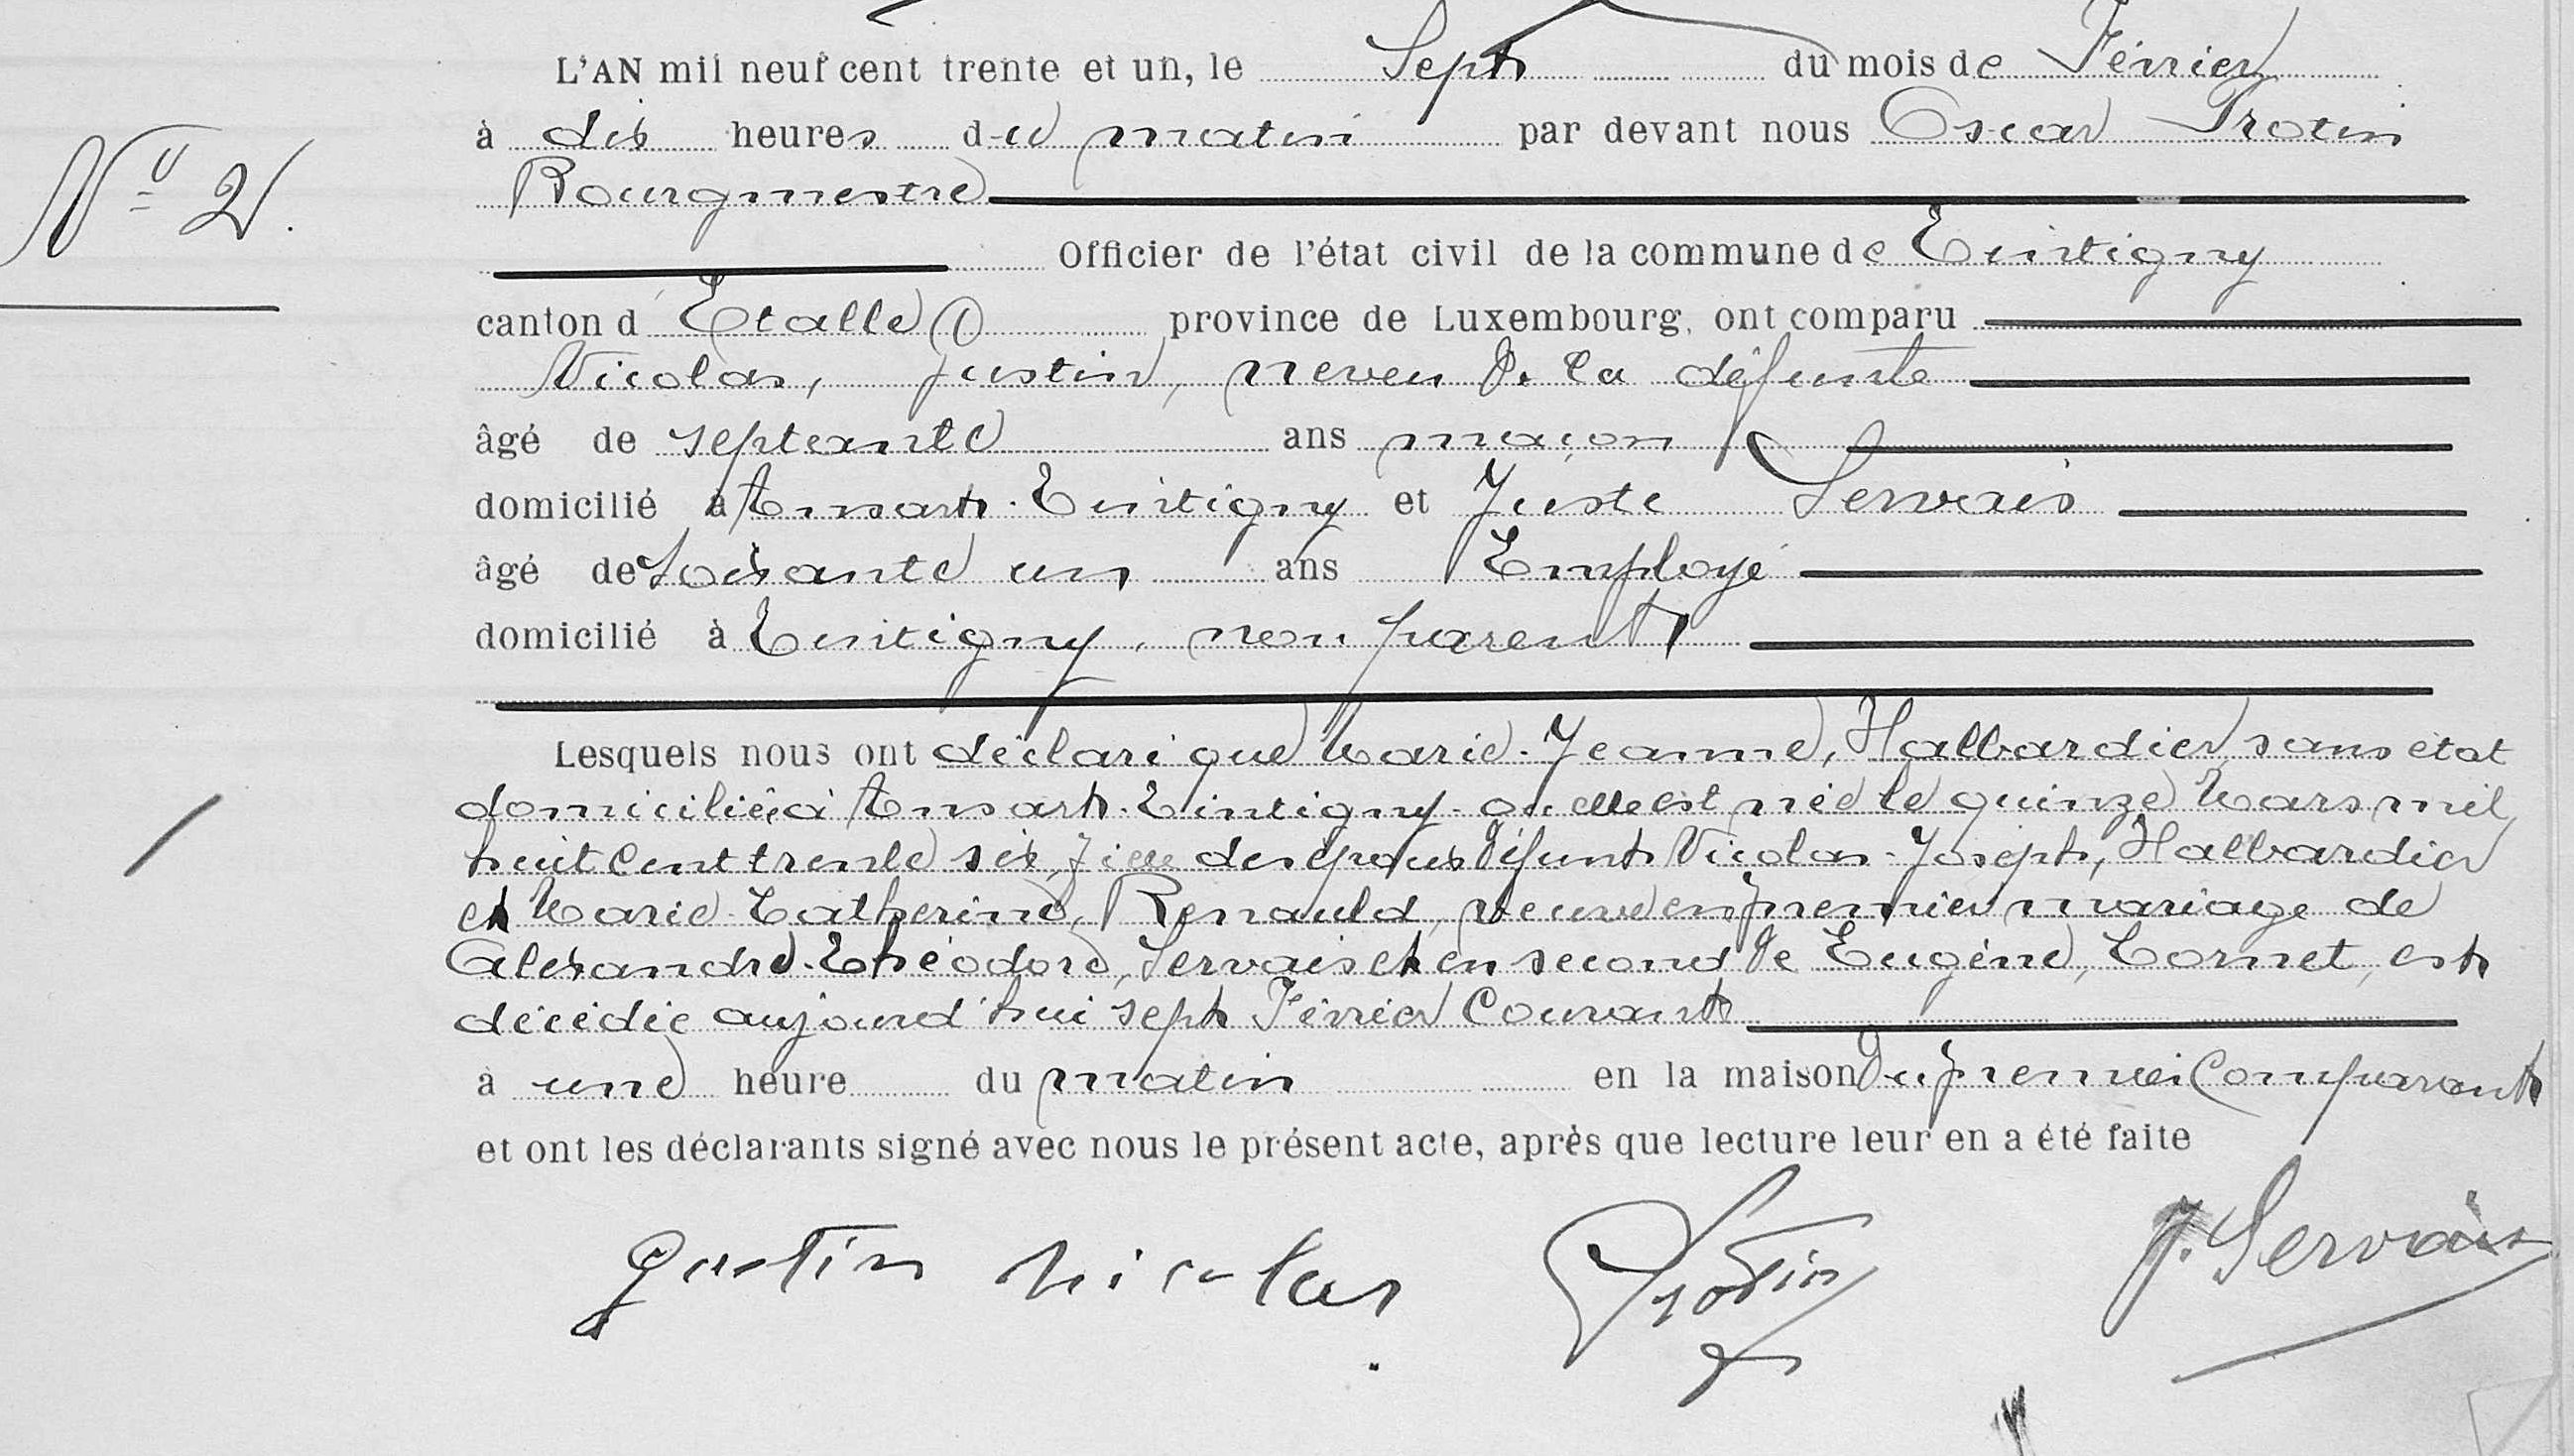 L'AN mil neuf cent trente et un, le Sept du mois de Février
à dix heures du matin par devant nous Oscar Trotin
N° 2.
Bourgmestre
Officier de l'état civil de la commune de Tintigny
canton d'Etalle province de Luxembourg, ont comparu
Nicolas, Justin, neveu de la défunte
âgé de septante ans maçon
domicilié à Ansart-Tintigny et Juste Servais
âgé de Soixante un ans Employé
domicilié à Tintigny, non parent
Lesquels nous ont déclaré que Marie-Jeanne, Halbardier, sans état
domiciliée à Ansart-Tintigny où elle est née le quinze Mars mil
huit cent trente six, fille des époux défunts Nicolas-Joseph, Halbardier
et Marie-Catherine, Renauld, veuve en premier mariage de
Alexandre-Théodore, Servais et en second de Eugène, Cornet, est
décédée aujourd'hui sept Février Courant
à une heure du matin en la maison du premier Comparant
et ont les déclarants signé avec nous le présent acte, après que lecture leur en a été faite
Justin Nicolas Trotin J. Servais